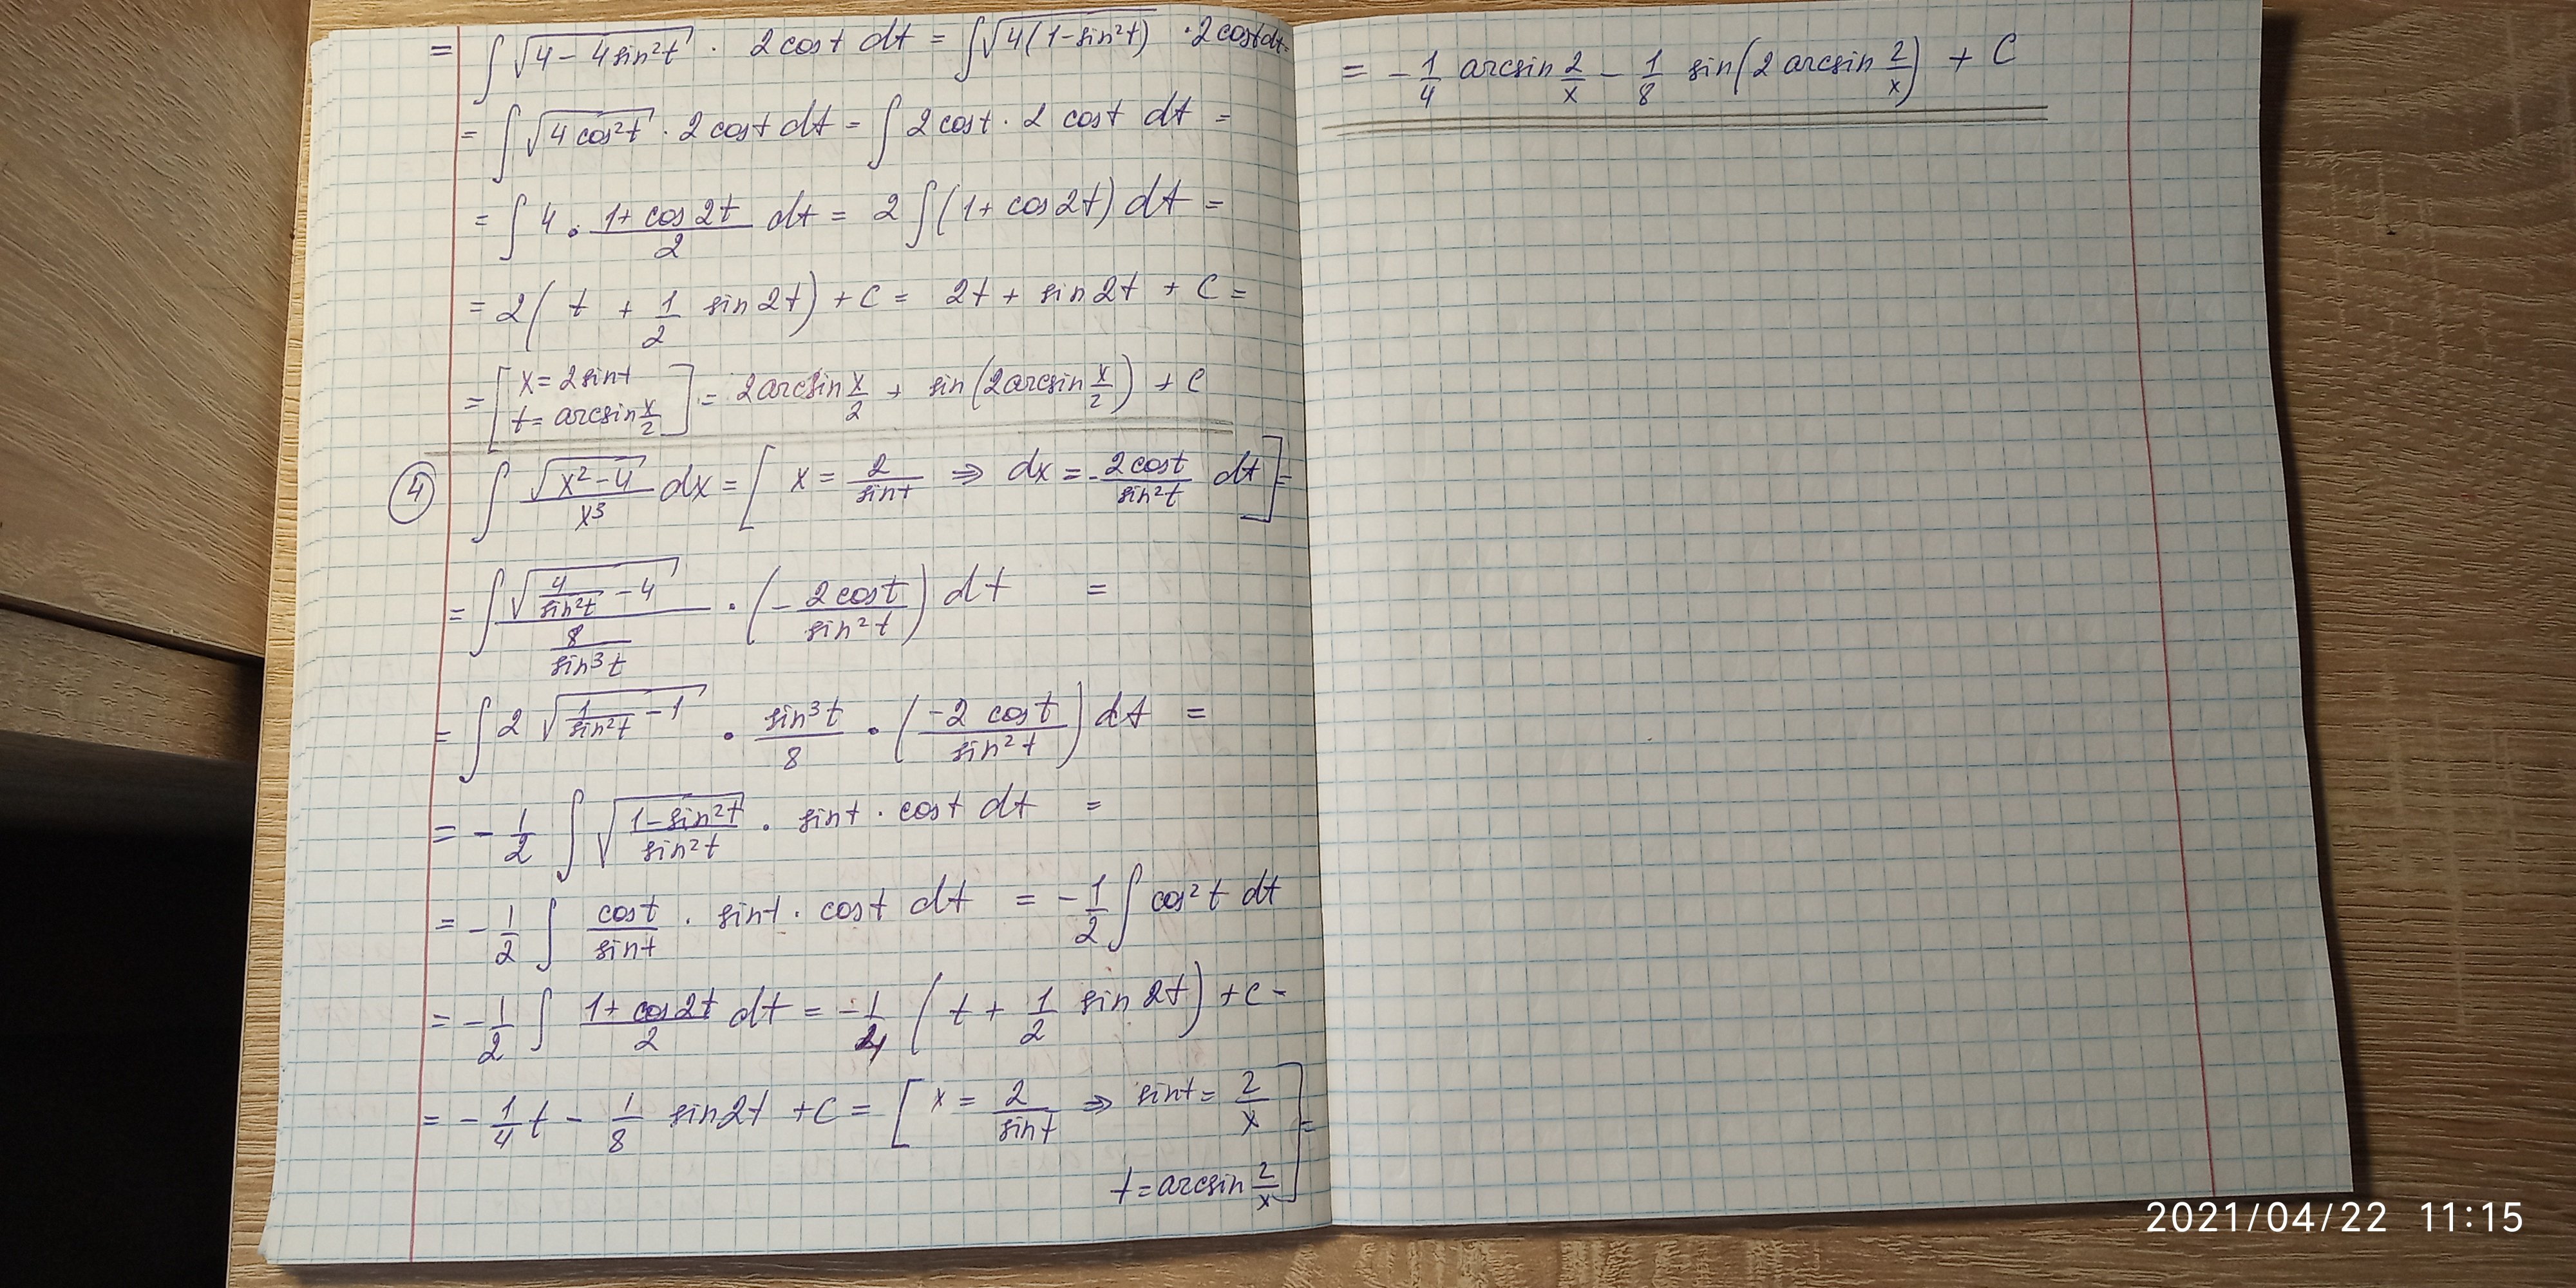 = ∫ √(4 - 4sin²t) · 2cost dt = ∫ √(4(1-sin²t)) · 2cost dt =
= ∫ √(4cos²t) · 2cost dt = ∫ 2cost · 2cost dt =
= ∫ 4 · (1+cos2t)/2 dt = 2∫(1+cos2t) dt =
= 2(t + 1/2 sin2t) + C = 2t + sin2t + C =
= [x = 2sint
t = arcsin x/2] = 2arcsin x/2 + sin(2arcsin x/2) + C
④ ∫ √(x²-4)/x³ dx = [x = 2/sint ⇒ dx = -2cost/sin²t dt] =
= ∫ √(4/sin²t - 4)/(8/sin³t) · (-2cost/sin²t) dt =
= ∫ 2 √(1/sin²t - 1) · sin³t/8 · (-2cost/sin²t) dt =
= -1/2 ∫ √((1-sin²t)/sin²t) · sint · cost dt =
= -1/2 ∫ cost/sint · sint · cost dt = -1/2 ∫ cos²t dt
= -1/2 ∫ (1+cos2t)/2 dt = -1/4 (t + 1/2 sin2t) + C =
= -1/4 t - 1/8 sin2t + C = [x = 2/sint ⇒ sint = 2/x
t = arcsin 2/x] =
= -1/4 arcsin 2/x - 1/8 sin(2arcsin 2/x) + C
2021/04/22 11:15